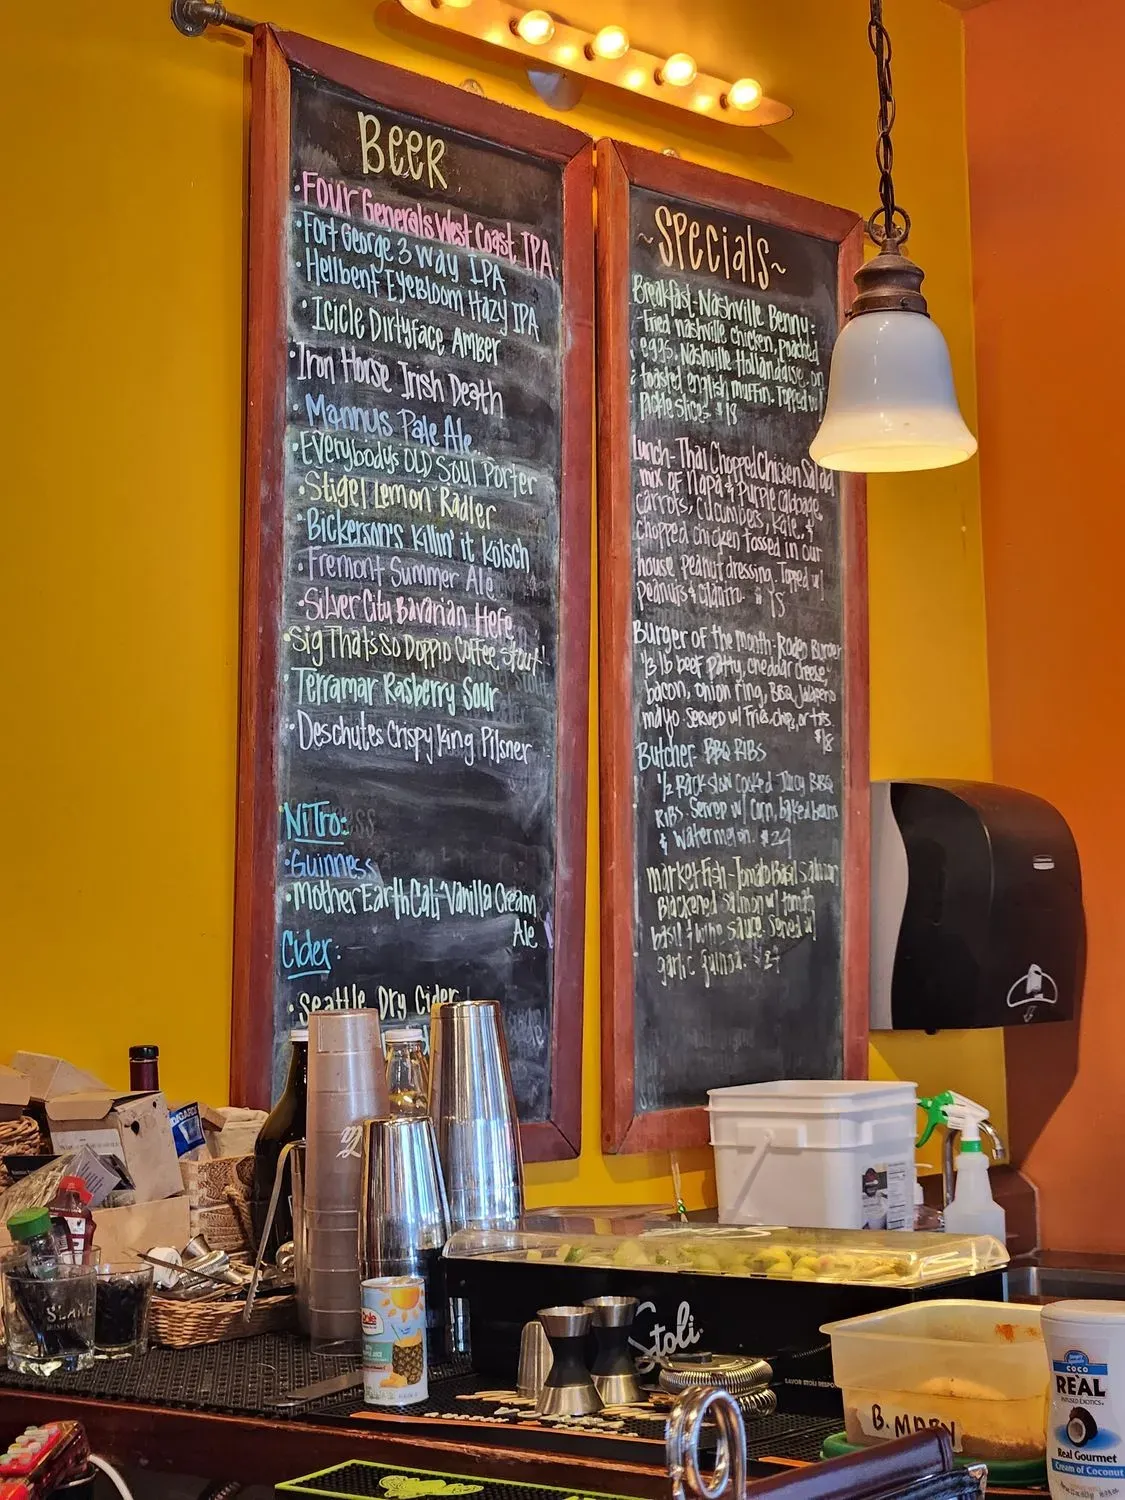 Beer
• Four Generals West Coast IPA
• Fort George 3 Way IPA
• Hellbent Eyebloom Hazy IPA
• Icicle Dirtyface Amber
• Iron Horse Irish Death
• Mannus Pale Ale
• Everybodys OLD Soul Porter
• Stigel Lemon Radler
• Bickerson's Killin' it Kolsch
• Fremont Summer Ale
• Silver City Bavarian Hefe
• Sig That's So Doppio Coffee Stout
• Terramar Rasberry Sour
• Deschutes Crispy King Pilsner
Nitro:
• Guinness
• Mother Earth Cali Vanilla Cream
Ale
Cider:
• Seattle Dry Cider
~Specials~
Breakfast-Nashville Benny:
Fried nashville chicken, poached
eggs, Nashville Hollandaise, on
toasted english muffin. Topped w/
pickle slices $18
Lunch- Thai Chopped Chicken Salad
mix of Napa & Purple cabbage,
carrots, cucumbers, kale, &
chopped chicken tossed in our
house peanut dressing. Topped w/
peanuts & cilantro. $15
Burger of the month- Rodeo Burger
1/3 lb beef patty, cheddar cheese,
bacon, onion ring, BBQ, Jalapeño
mayo. Served w/ Fries, chips, or tots.
$18
Butcher- BBQ Ribs
1/2 Rack slow cooked- Juicy BBQ
Ribs. Served w/ Corn, baked beans
& watermelon. $29
market Fish- Tomato Basil Salmon
Blackened Salmon w/ tomato
basil & wine sauce. Served w/
garlic quinoa.
SLANE
Dole
Stoli
B. MARY
COCO
REAL
Real Gourmet
Cream of Coconut